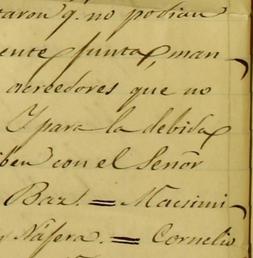 taron q. no podian
ente junta, man
acreedores que no
Y para la debida
iben con el Señor
Baz. = Macsimi-
y Náfera. = Cornelio